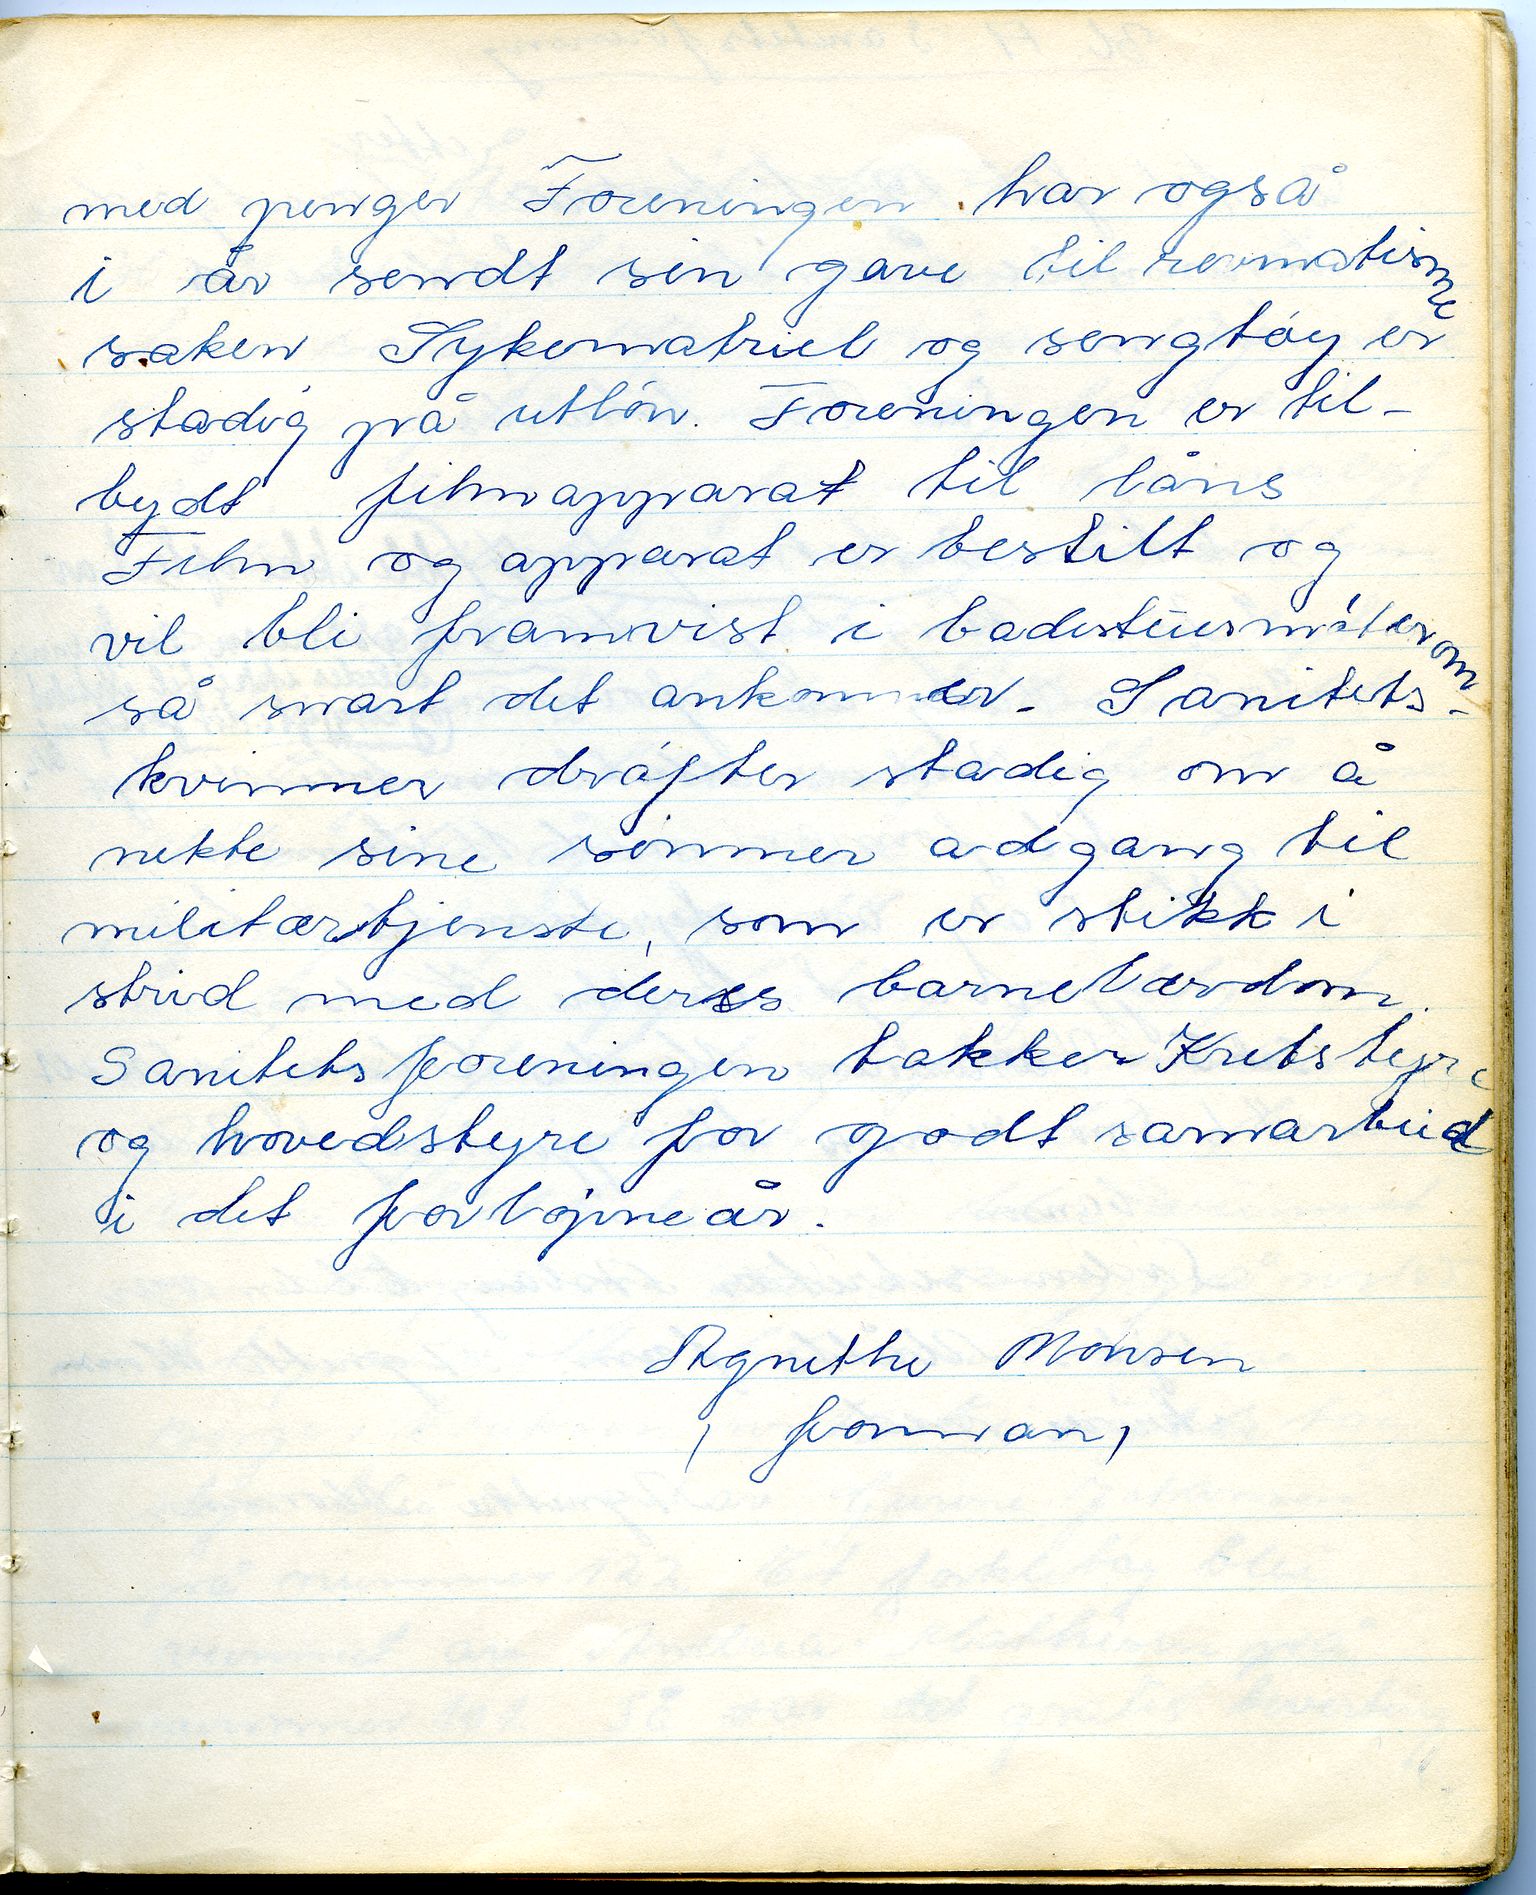 med penger Foreningen har også
i år sendt sin gave til revmatisme
saken Sykematriel og sengtøy er
stadig på utlån. Foreningen er til-
bydt filmapparat til låns
Film og apparat er bestilt og
vil bli framvist i badestuermøterom
så snart det ankommer. Sanitets-
kvinner drøfter stadig om å
nekte sine sønner adgang til
militærtjenste, som er stikk i
strid med deres barnelærdom.
Sanitetsforeningen takker Kretsstyre
og hovedstyre for godt samarbeid
i det forløpne år.
Agnethe Monsen
/ formann /